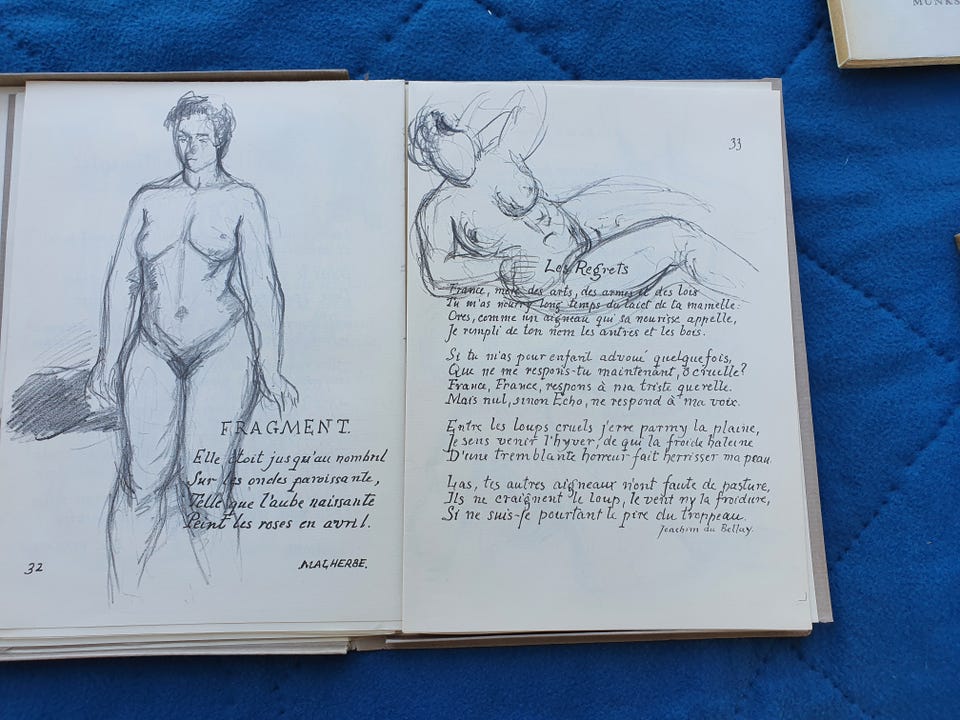 FRAGMENT.
Elle étoit jusqu'au nombril
Sur les ondes paroissante,
Telle que l'aube naissante
Peint les roses en avril.
MALHERBE.
32
33
Les Regrets
France, mère des arts, des armes et des lois
Tu m'as nourry long temps du laict de ta mamelle:
Ores, comme un aigneau qui sa nourisse appelle,
Je rempli de ton nom les antres et les bois.
Si tu m'as pour enfant advoué quelquefois,
Que ne me respons-tu maintenant, ô cruelle?
France, France, respons à ma triste querelle.
Mais nul, sinon Echo, ne respond à ma voix.
Entre les loups cruels j'erre parmy la plaine,
Je sens venir l'hyver, de qui la froide haleine
D'une tremblante horreur fait herrisser ma peau.
Las, tes autres aigneaux n'ont faute de pasture,
Ils ne craignent le loup, le vent ny la froidure,
Si ne suis-je pourtant le pire du troppeau.
Joachim du Bellay.